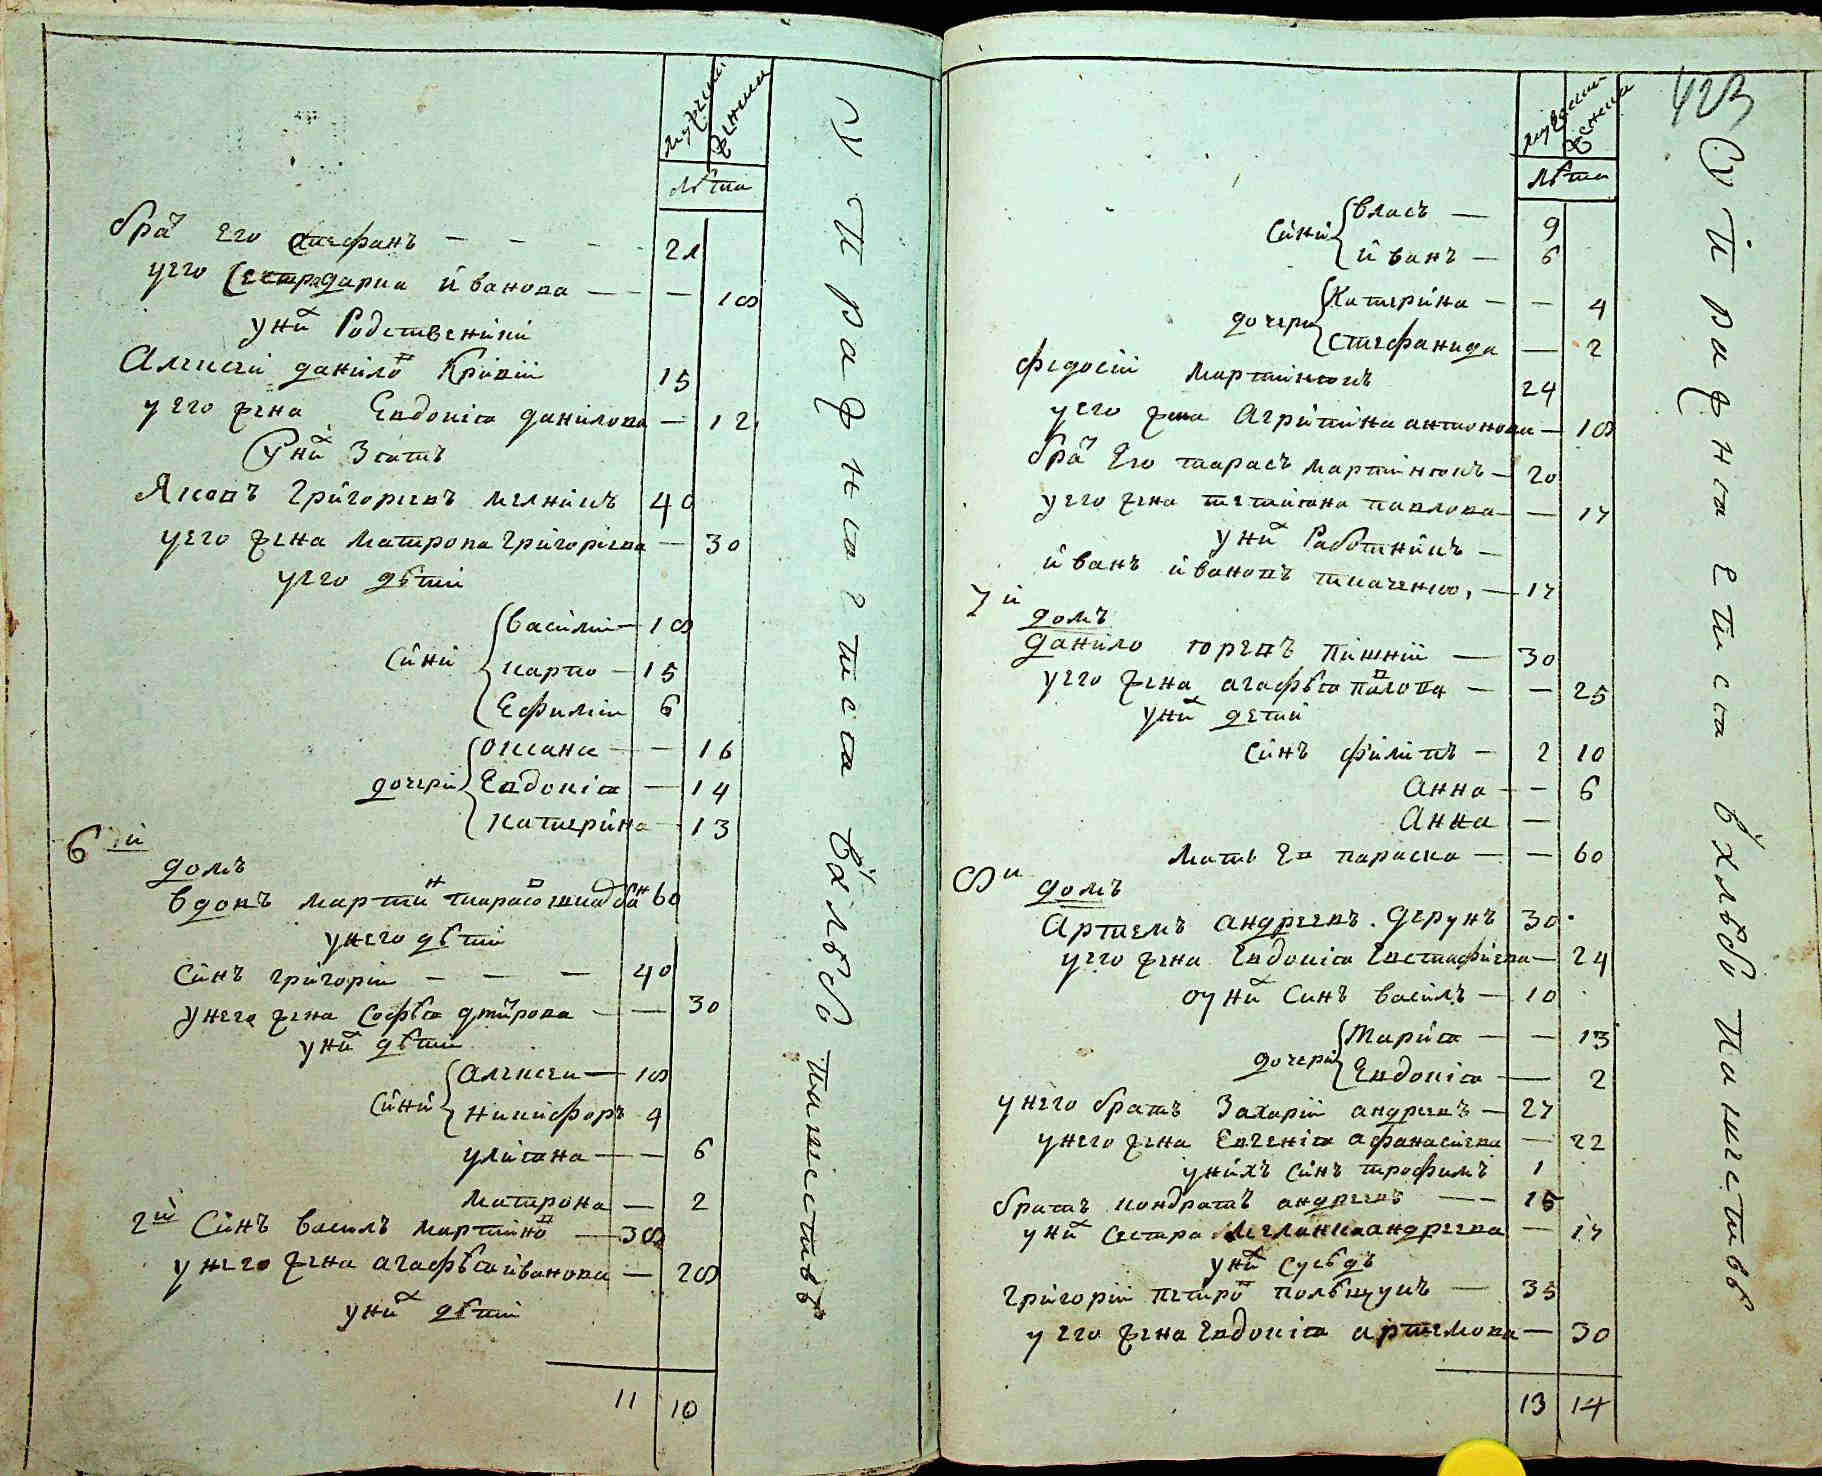 мужеска женска
лѣта
бра его Стефанъ — — — 21
у его Сестра дарпа ивановa — — 18
у них Родственики
Алексій данило Кривій 15
у его жена Евдокія данилова — 12
У них Зятъ
Яковъ григориевъ мелникъ 40
у его жена матрона григориева — 30
у его дѣти
Сини Василии — 18
карпо — 15
Ефимии 6
дочери Оксана — — 16
Евдокия — 14
катерина — 13
6 й
домъ
вдовъ марти 60
у него дѣти
Синъ григории — — — 40
у него жена Софѣя дмитрова — — 30
у них дѣти
Сини Алексеи — 18
никифоръ 9
улияна — — 6
матрона — 2
2й Синъ василъ мартино — 38
у него жена агафѣя иванова — 28
у них дѣти
11 10
423
мужеска женска
лѣта
Сини власъ — 9
иванъ — 6
дочери Катерина — — 4
Стефанида — 2
федосии мартинюкъ 24
у его жена Агрипина антонова — 18
бра Его тарасъ мартинюкъ — 20
у его жена татияна павлова — — 17
у них Работникъ —
иванъ ивановъ ткаченко, — 17
7 й
домъ
данило горевъ пишнии — 30
у его жена агафѣя — — 25
у них дети
Синъ филипъ — 2 10
Анна — — 6
Анна —
мать Ев параска — — 60
8 и
домъ
Артемъ андреевъ дерунъ 30
у его жена Евдокия Евстафиева — 24
оу них Синъ василъ — 10
дочери Мария — — 13
Евдокия — 2
у него братъ Захарии андреевъ — 27
у него жена Евгения афанасиева — 22
у нихъ Синъ трофимъ 1
братъ кондратъ андреевъ — — 15
у них Сестра Мелания андреева — 17
у них Сусѣдъ
григорий петро — 35
у его жена Евдокия артемова — 30
13 14